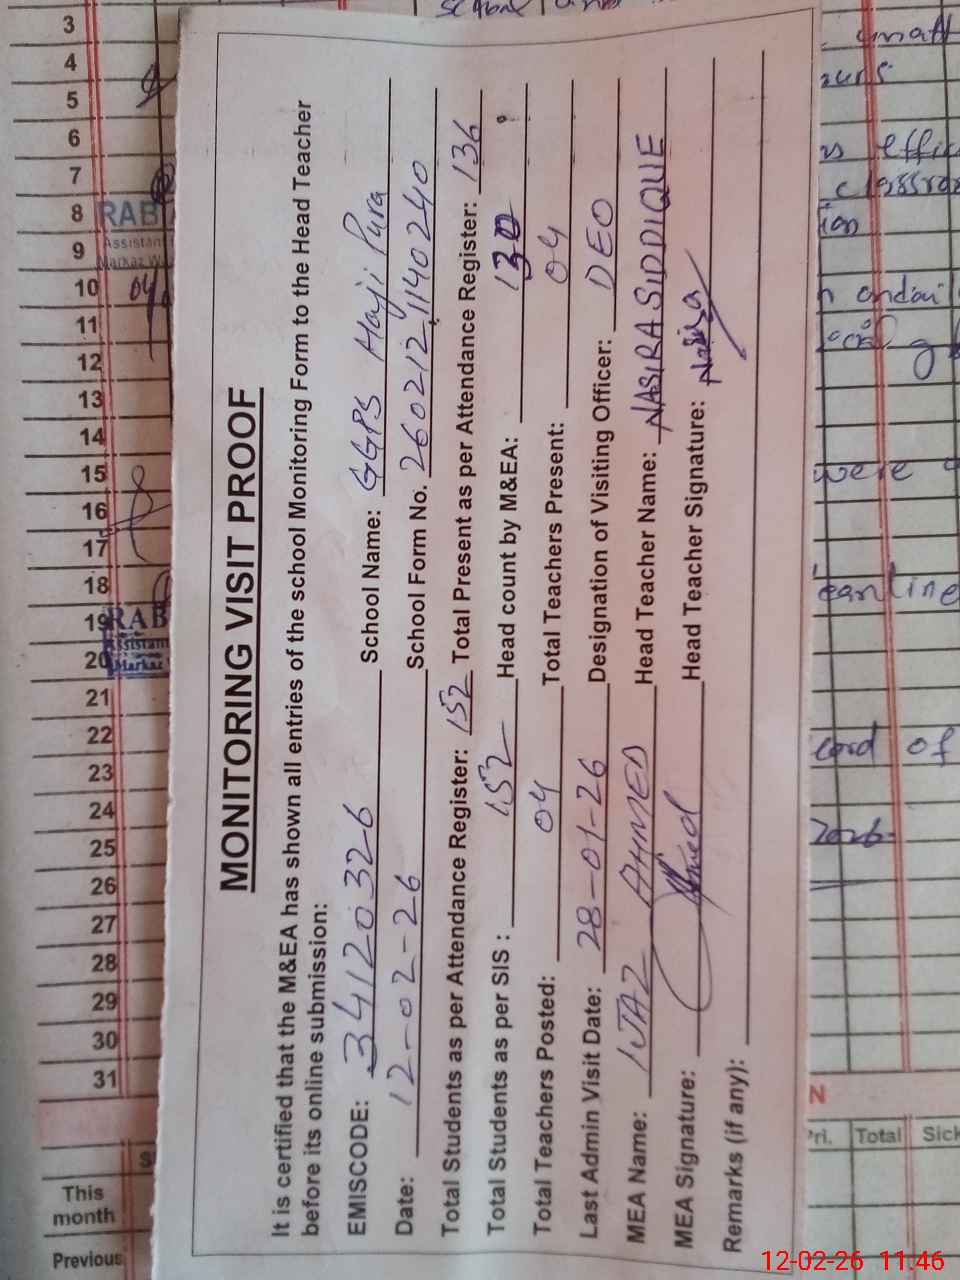 MONITORING VISIT PROOF
It is certified that the M&EA has shown all entries of the school Monitoring Form to the Head Teacher
before its online submission:
EMISCODE: 34120326 School Name: GGPS Hayji Pura
Date: 12-02-26 School Form No. 260212-1140240
Total Students as per Attendance Register: 152 Total Present as per Attendance Register: 136
Total Students as per SIS : 152 Head count by M&EA: 130
Total Teachers Posted: 04 Total Teachers Present: 04
Last Admin Visit Date: 28-01-26 Designation of Visiting Officer: DEO
MEA Name: IJAZ AHMED Head Teacher Name: NASIRA SIDDIQUIE
MEA Signature: Ahmed Head Teacher Signature: Nasira
Remarks (if any):
3
4
5
6
7
8 RAB
9 Assistan
Markaz W
10 04
11
12
13
14
15
16
17
18
19 RAB
Assistan
20 Markaz
21
22
23
24
25
26
27
28
29
30
31
This
month
Previous
school
effic
classro
were
eanline
of
N
Pri. Total Sick
12-02-26 11.46